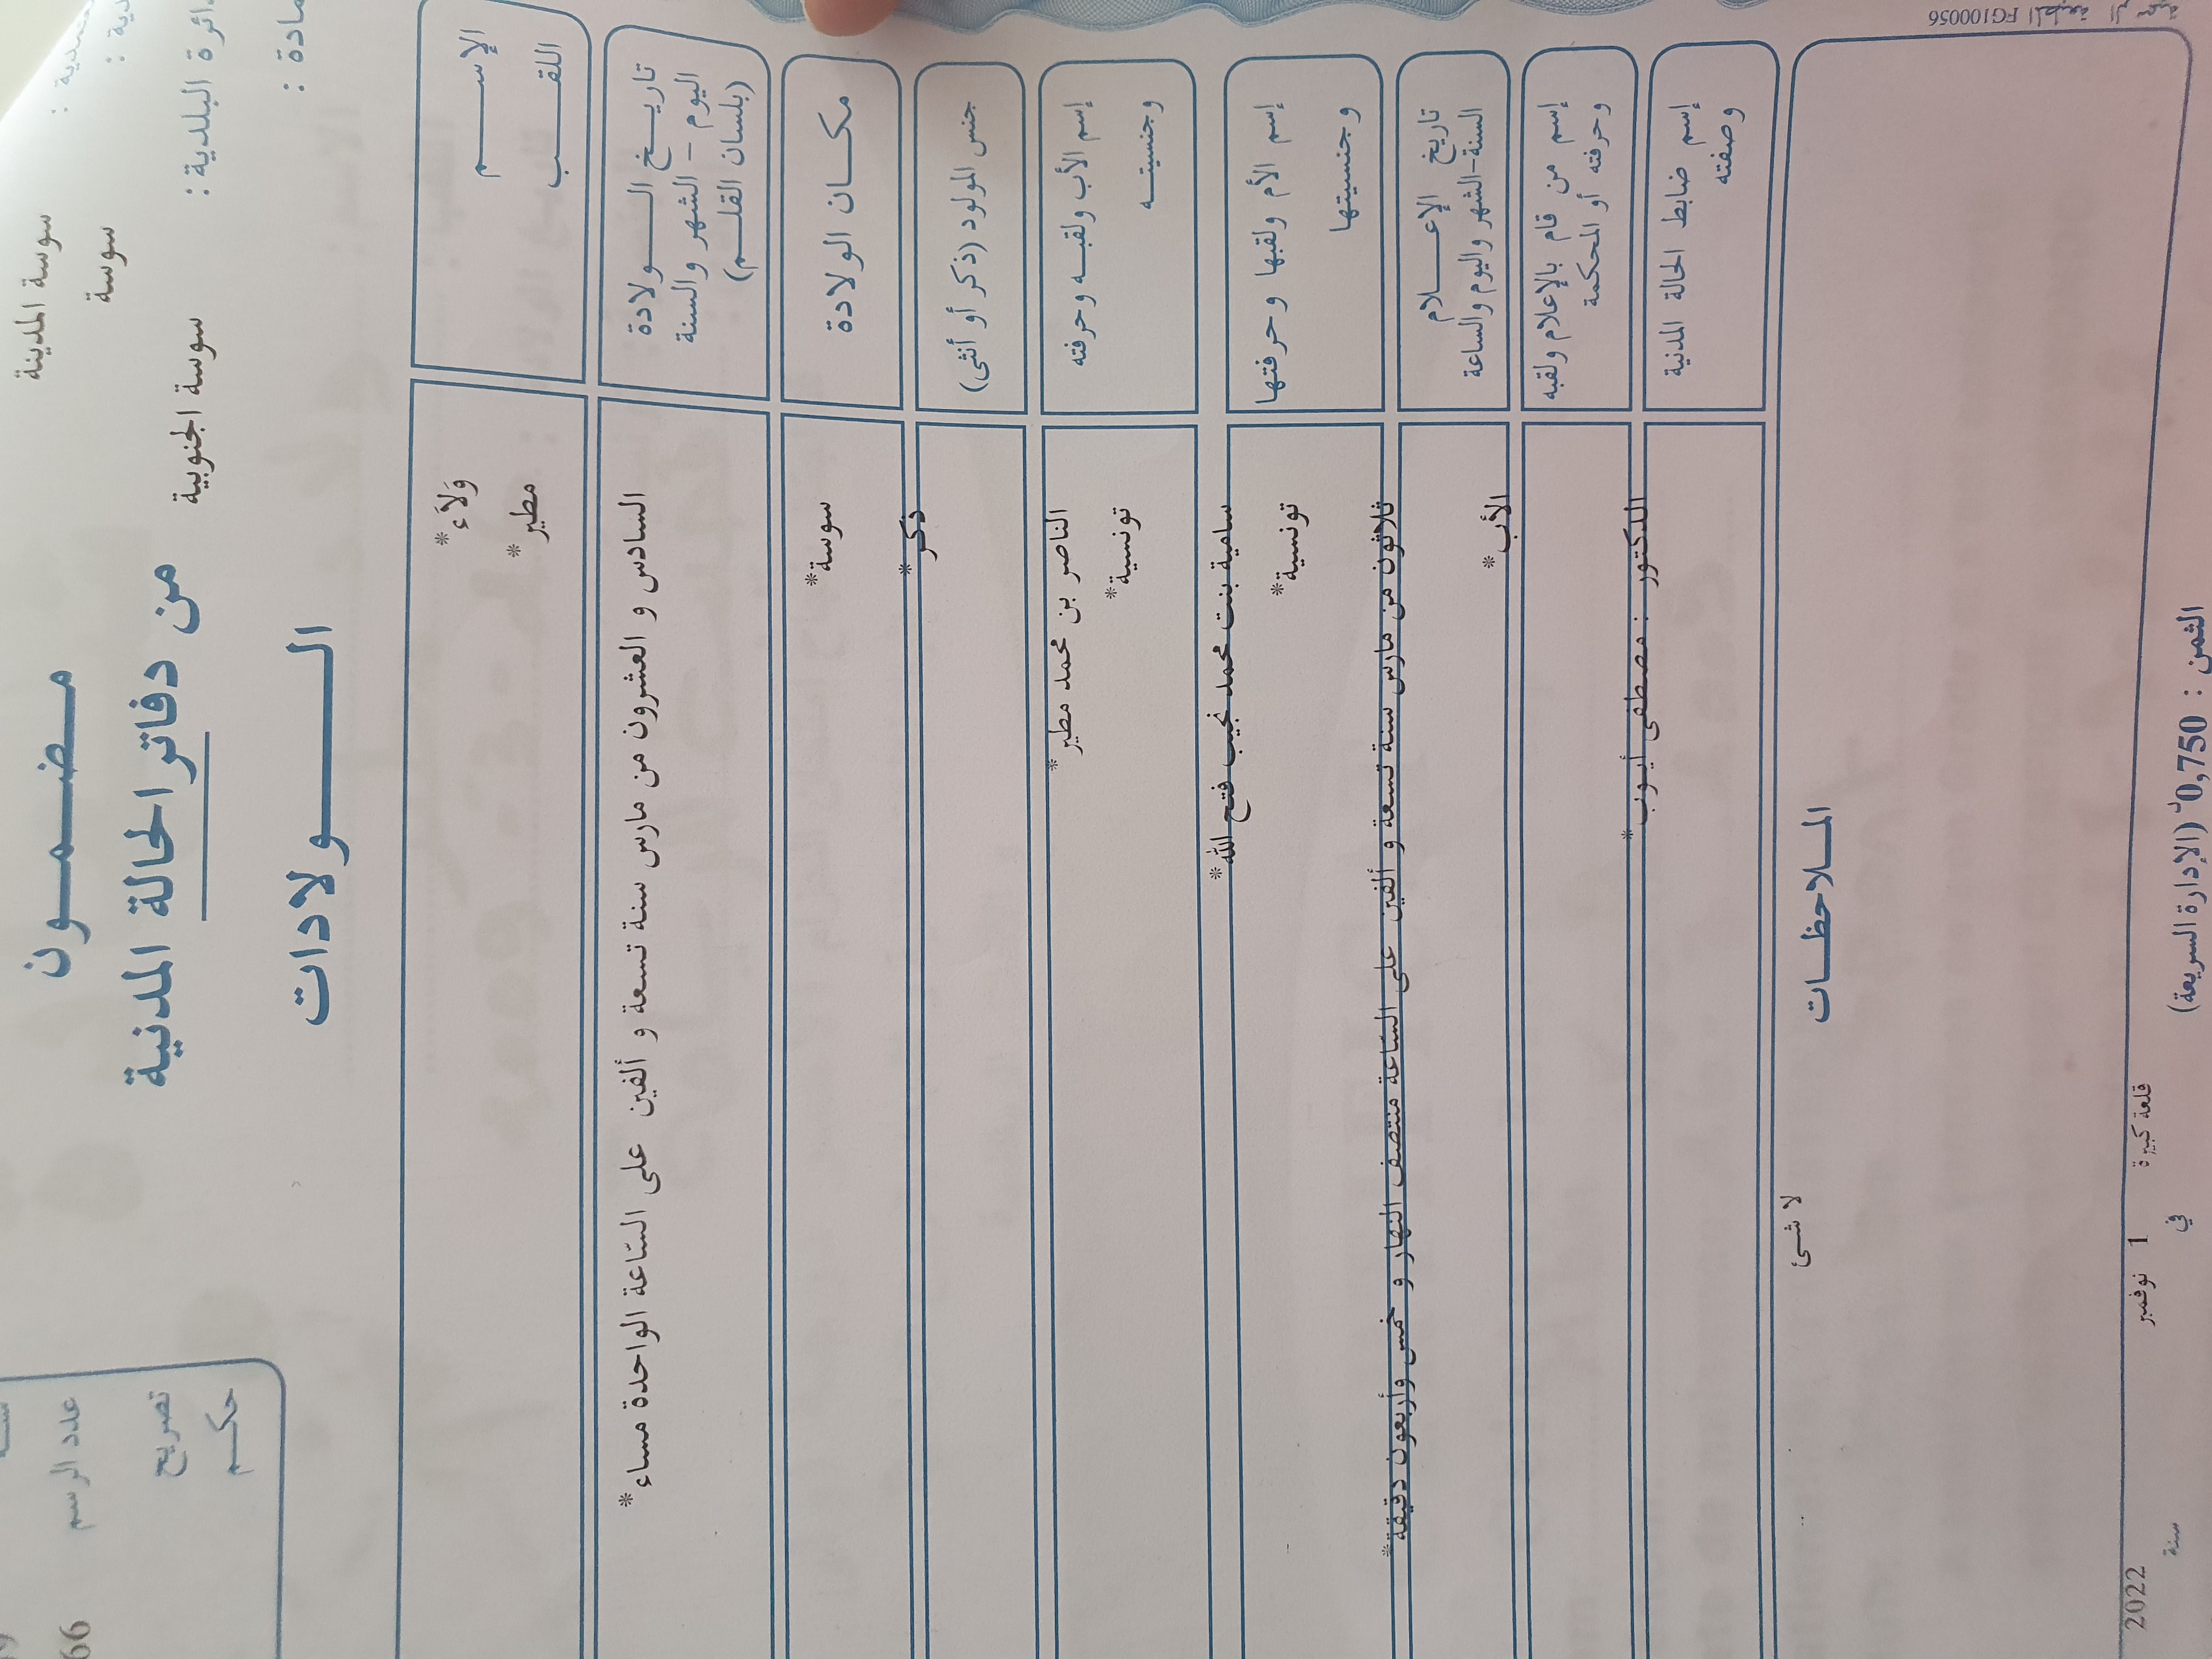 سوسة المدينة
سوسة
دائرة البلدية : سوسة الجنوبية
مضمون
من دفاتر الحالة المدنية
الولادات
عدد الرسم 66
تصريح
حكم
الإسم وَلاَء *
اللقب مطير *
تاريخ الولادة السادس و العشرون من مارس سنة تسعة و ألفين على السّاعة الواحدة مساء *
اليوم – الشهر والسنة
(بلسان القلم)
مكان الولادة سوسة *
جنس المولود (ذكر أو أنثى) ذكر *
إسم الأب ولقبه وحرفته الناصر بن محمد مطير *
وجنسيته تونسية *
إسم الأم ولقبها وحرفتها سامية بنت محمد نجيب فتح الله *
وجنسيتها تونسية *
تاريخ الإعلام ثلاثون من مارس سنة تسعة و ألفين على السّاعة منتصف النهار و خمس وأربعون دقيقة *
السنة-الشهر واليوم والساعة
إسم من قام بالإعلام ولقبه الأب *
وحرفته أو المحكمة
إسم ضابط الحالة المدنية الدكتور : مصطفى أيوب *
وصفته
الملاحظات
لا شئ
قلعة كبيرة في 1 نوفمبر سنة 2022
الثمن : 0,750د (الإدارة السريعة)
FG100056